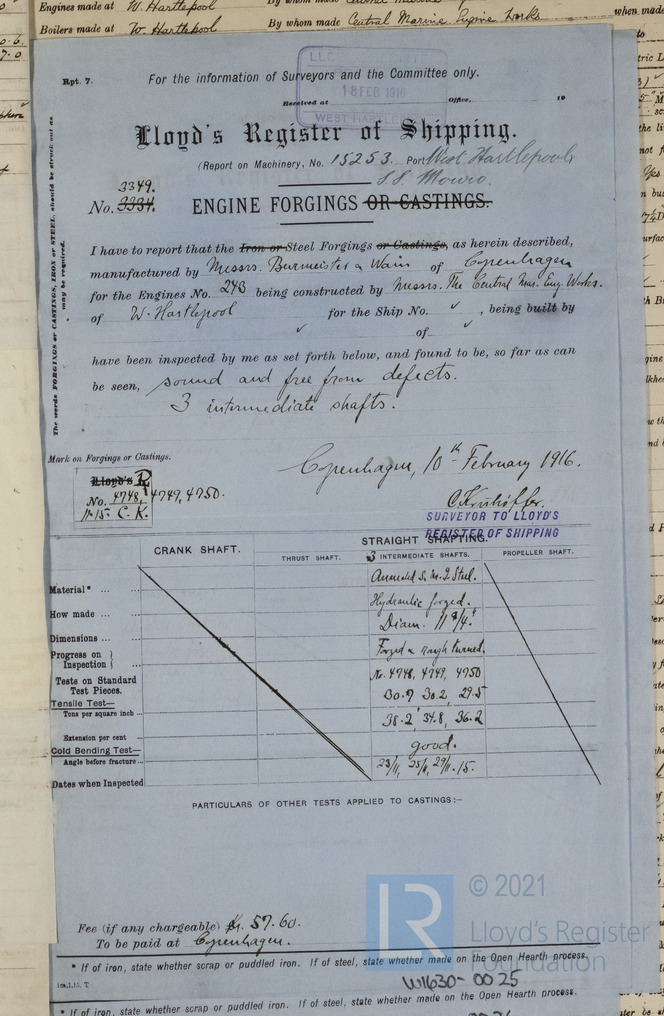 Engines made at W. Hartlepool By whom made Central Marine
Boilers made at W. Hartlepool By whom made Central Marine Engine Works when made
Rpt. 7. For the information of Surveyors and the Committee only.
Received at Office, 19
18 FEB 1916
WEST HARTLEPOOL
Lloyd's Register of Shipping.
(Report on Machinery, No. 15253. Port West Hartlepool
S.S. Mouro.
3349.
No. 3334. ENGINE FORGINGS OR CASTINGS.
The words FORGINGS or CASTINGS, IRON or STEEL, should be struck out as may be required.
I have to report that the Iron or Steel Forgings or Castings, as herein described,
manufactured by Messrs. Burmeister & Wain of Copenhagen
for the Engines No. 243 being constructed by Messrs. The Central Mar. Eng. Works.
of W. Hartlepool for the Ship No. ✓ , being built by
✓ of ✓
have been inspected by me as set forth below, and found to be, so far as can
be seen, sound and free from defects.
3 intermediate shafts.
Mark on Forgings or Castings.
Copenhagen, 10th February 1916.
Lloyd's R
No. 4748, 4749, 4750.
11-15. C. K.
SURVEYOR TO LLOYD'S
REGISTER OF SHIPPING
STRAIGHT SHAFTING.
CRANK SHAFT. THRUST SHAFT. 3 INTERMEDIATE SHAFTS. PROPELLER SHAFT.
Material* ... ... Annealed S. M. I. Steel.
How made ... Hydraulic forged.
Dimensions ... Diam. 11 3/4"
Progress on Inspection } ... Forged & rough turned.
Tests on Standard Test Pieces. No. 4748, 4749, 4750
Tensile Test—
Tons per square inch ... 30.7 30.2, 29.5
Extension per cent 38.2, 34.8, 36.2
Cold Bending Test—
Angle before fracture ... good.
Dates when Inspected 23/11, 25/11, 29/11.-15.
PARTICULARS OF OTHER TESTS APPLIED TO CASTINGS:—
Fee (if any chargeable) Kr. 57.60.
To be paid at Copenhagen.
* If of iron, state whether scrap or puddled iron. If of steel, state whether made on the Open Hearth process.
W1630-0025
* If of iron, state whether scrap or puddled iron. If of steel, state whether made on the Open Hearth process.
© 2021
LR
Lloyd's Register
Foundation